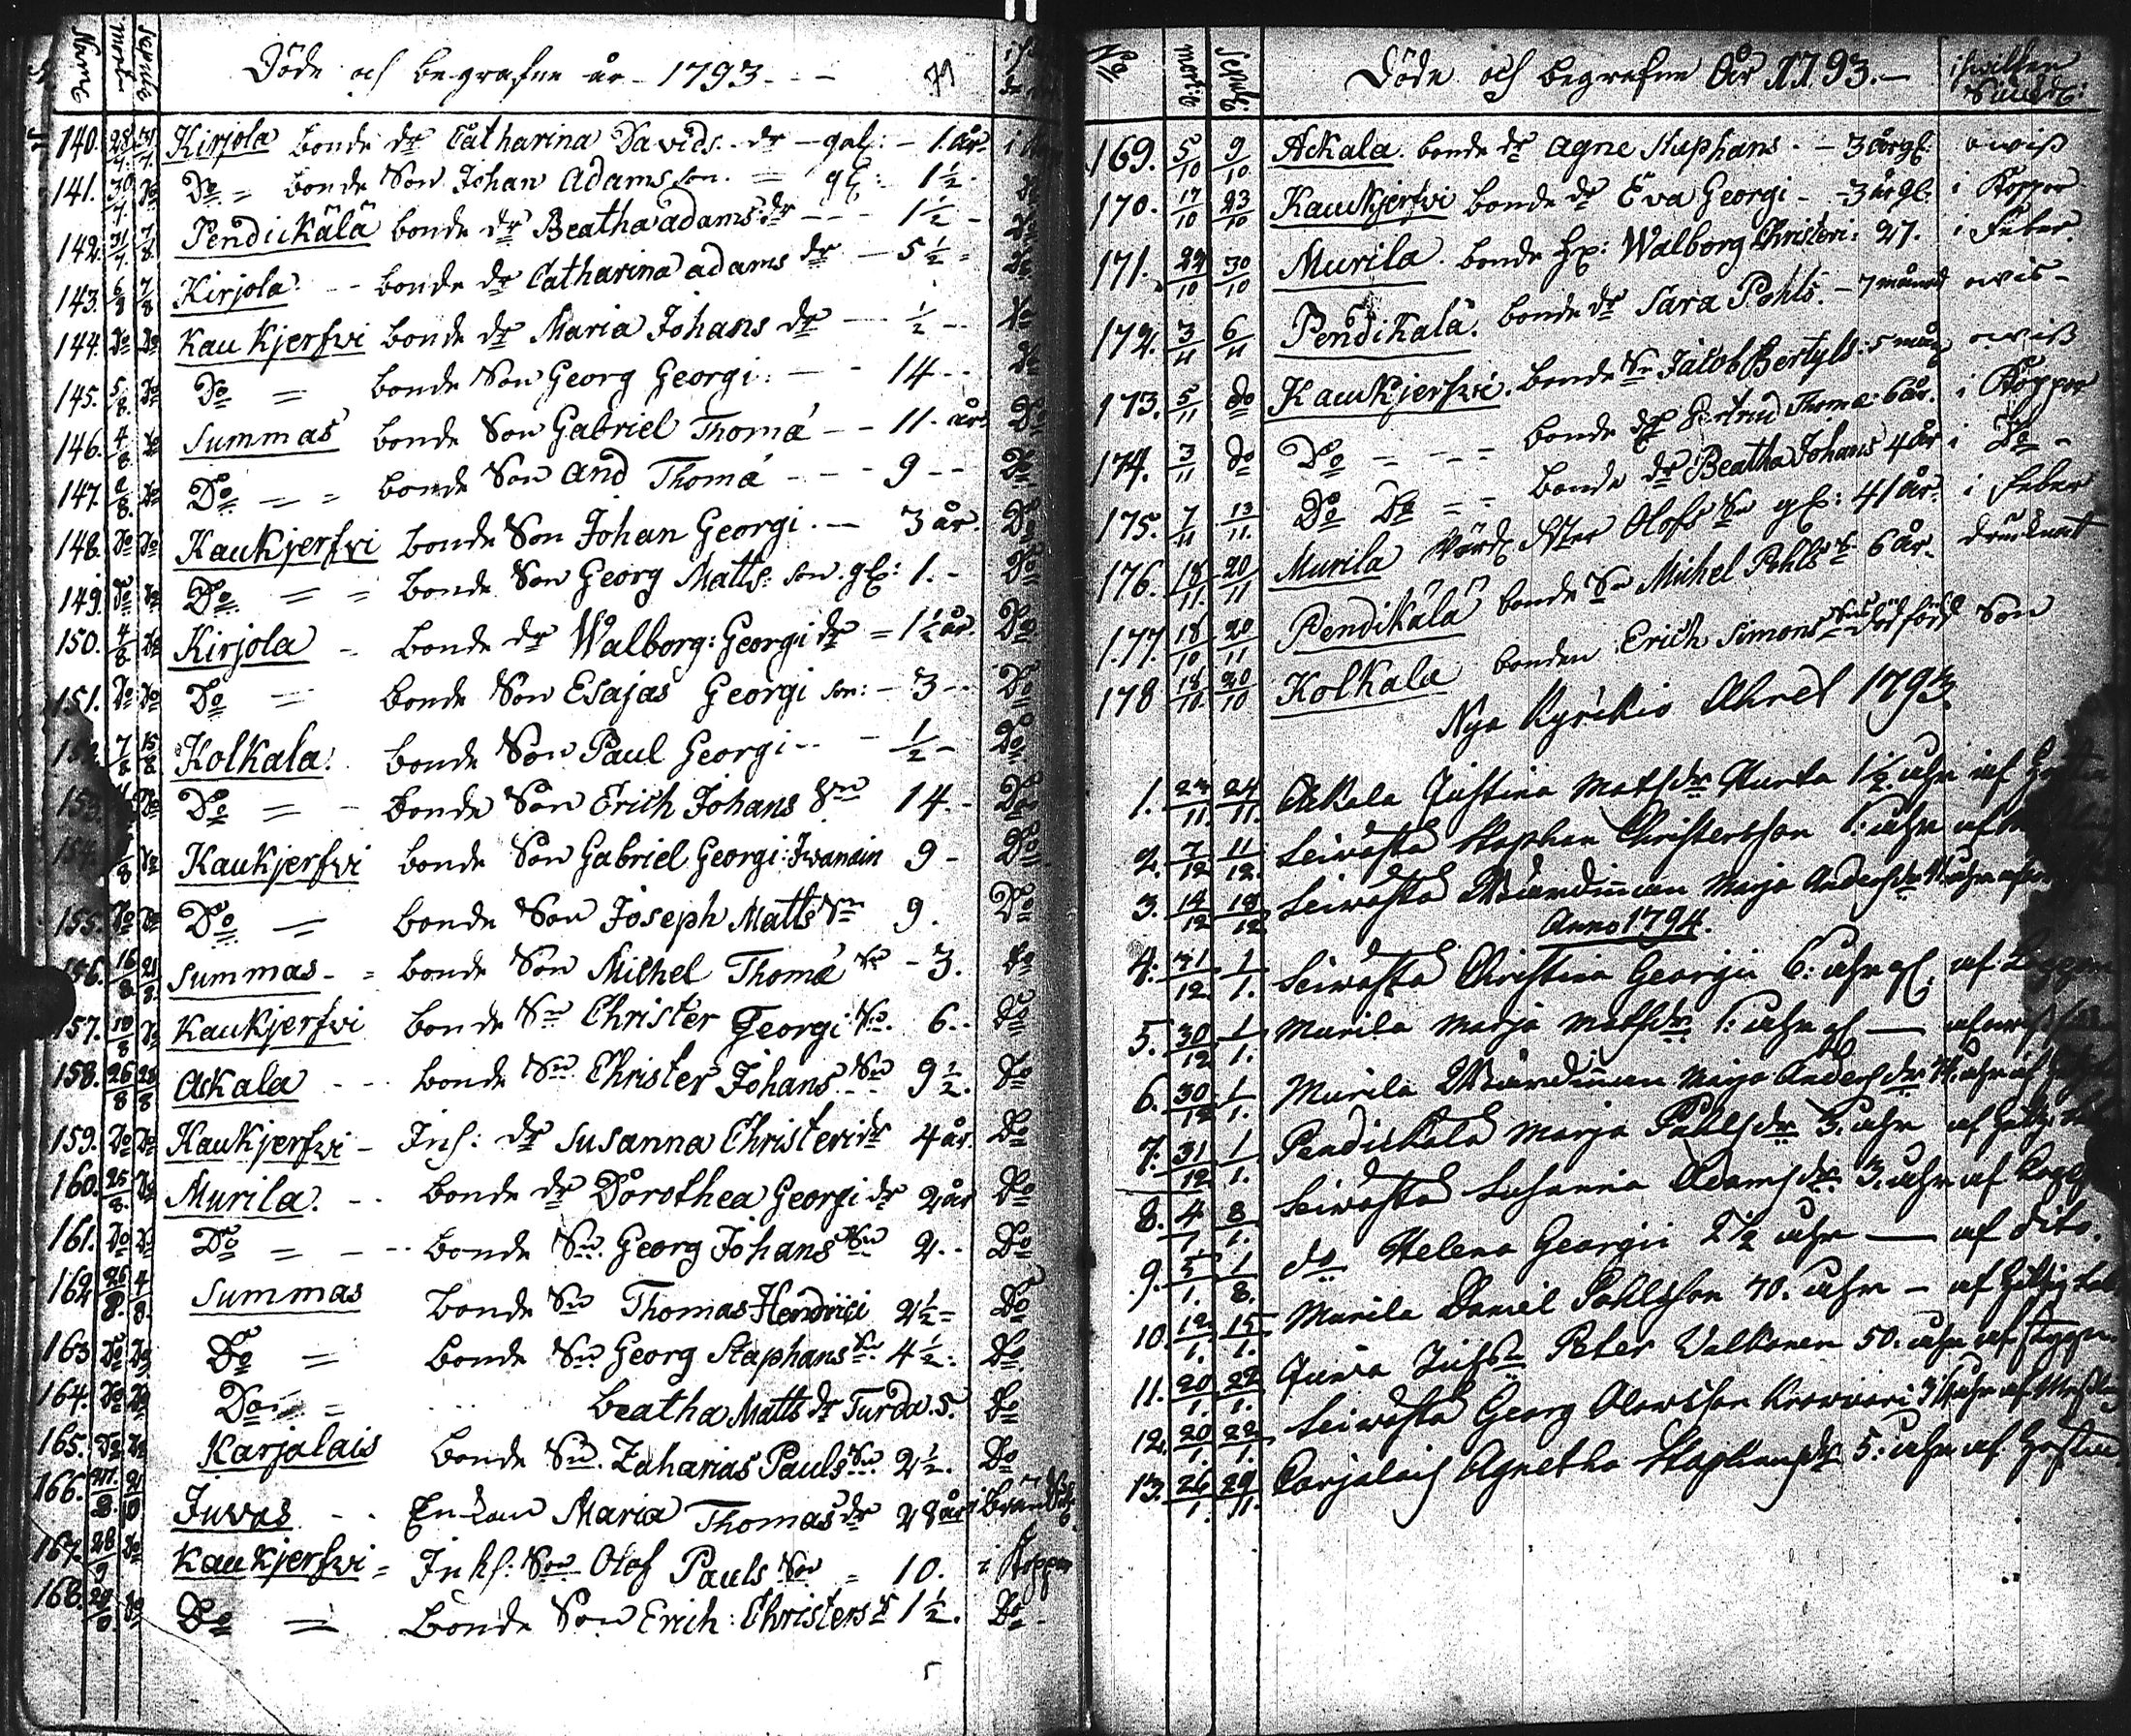 Numr mortu sepult Döde och begrafne år 1793
140. 28/7 31/7 Kirjola bonde dr Catharina Davids dr gal: 1 år. i
141. 30/7 Do Do = bonde Son Johan Adams son. = gl: 1½. Do
142. 31/7 7/8 Pendikälä bonde dr Beatha adams dr - - - 1½ - Do
143. 6/8 7/8 Kirjola - - bonde dr Catharina adams dr - 5½ - Do
144. Do Do Kaukjerfwi bonde dr Maria Johans dr - ½ - Do
145. 5/8 Do Do = bonde Son Georg Georgi: - - 14 - - Do
146. 4/8 Do Summas bonde Son Gabriel Thomá - - 11. år: Do
147. 2/8 Do Do = = bonde Son And Thomá - - - 9 - - Do
148. Do Do Kaukjerfvi bonde Son Johan Georgi. - 3 år. Do
149. Do Do Do = = bonde Son Georg Matts: son. gl: 1. - Do
150. 4/8 Do Kirjola - bonde dr Walborg: Georgi dr = 1½ år. Do
151. Do Do Do = bonde Son Esajas Georgi son: - 3 - - Do
7/8 15/8 Kolkala. bonde Son Paul Georgi - - - ½ - Do
153. Do Do = - bonde Son Erich Johans Sn 14. - Do
154. Do Kaukjerfvi bonde Son Gabriel Georgi: Iwanain 9 - Do
155. Do Do Do = bonde Son Joseph Matts Sn 9. Do
156. 16/8 21/8 Summas - = bonde Son Michel Thomá Sn - 3. Do
157. 18/8 Do Kaukjerfvi bonde Sn Christer Georgi Sn. 6. - Do
158. 26/8 28/8 Askala - - bonde Sn Christer Johans Sn 9½. Do
159. Do Do Kaukjerfvi - Inh: dr Susanna Christeri dr 4 år. Do
160. 25/8 Do Murila. - - bonde dr Dorothea Georgi dr 2 år Do
161. Do Do Do = - - - bonde Sn Georg Johans Sn 2. - Do
162 26/8 4/8 Summas bonde Sn Thomas Hendrici 2½ = Do
163 Do Do Do = bonde Sn Georg Staphans Sn 4½: Do
164. Do Do Do = beatha Matts dr Turda. 5. Do
165. Do Do Karjalais bonde Sn. Zacharias Pauls Sn 2½. Do
166. Juvas - - Enkan Maria Thomas dr 28 år
167. 28/9 Do Kaukjerfvi = Inh: Son Olof Pauls Son = 10. i Koppor
168. 29/9 Do Do = Bonde Son Erich: Christers S 1½. Do -
No mort: sepult: Döde och begrafne År 1793. - i hvilken Siukd:
169. 5/10 9/10 Askala. bonde dr Agne Staphans. - 3 år gl. owiss
170. 17/10 23/10 Kaukjerfvi bonde dr Eva Georgi - 3 år gl. i Koppor
171. 22/10 30/10 Murila. bonde Walborg Christeri: 27. i Feber
172. 3/11 6/11 Pendikälä. bonde dr Sara Pohls. - 7 månad owis -
173. 5/11 Do Kaukjerfvi. bonde Sn Jacob Bertyls: 5 mån owiss
174. 3/11 Do Do - - = bonde dr Gertrud Thomæ: 6 år. i Koppor
175. 7/11 13/11. Do Do = = bonde dr Beatha Johans 4 år i Do -
176. 18/11. 20/11 Murila Wärd Ster Olofs Sn gl: 41 år. i feber
177. 18/10 20/11 Pendikälä bonde Sn Michel Pohls S. 6 år. druknat
178 18/10. 20/10 Kolkala bonden Erich Simons Sns död född Son
Nya Kyrkio Ahret 1793
1. 23/11. 24/11. Askala Justina Mats dr Kurta 1½ ahr af
2. 7/12 11/12. Seiwasta Staphan Christersson 1: ahr af
3. 14/12 18/12 Seiwasta Wärdinnan Marja Anders dr
Anno 1794.
4. 31/12. 1/1. Seiwasta Christina Georgii 6: ahr gl. af Koppor
5. 30/12 1/1. Murila Marja Mats dr 1: ahr gl —
6. 30/12 1/1. Murila Wärdinnan Marja Anders dr 74. ahr af
7. 31/12 1/1. Pendikälä Marja Pahls dr 3. ahr af
8. 4/1 8/1. Seiwasta Susanna Adams dr. 3. ahr af
9. 5/1. 1/8. do Helena Georgii 2½ ahr — af dito.
10. 12/1. 15/1. Murila Daniel Pahlsson 70. ahr - af
11. 20/1. 22/1. Juwa Inhs Peter Valkonen 50. ahr af stygn.
12. 20/1. 22/1. Seiwasta Georg Olowsson
13. 26/1. 29/1. Carjalais Agnetha Staphans dr 5. ahr af hosta